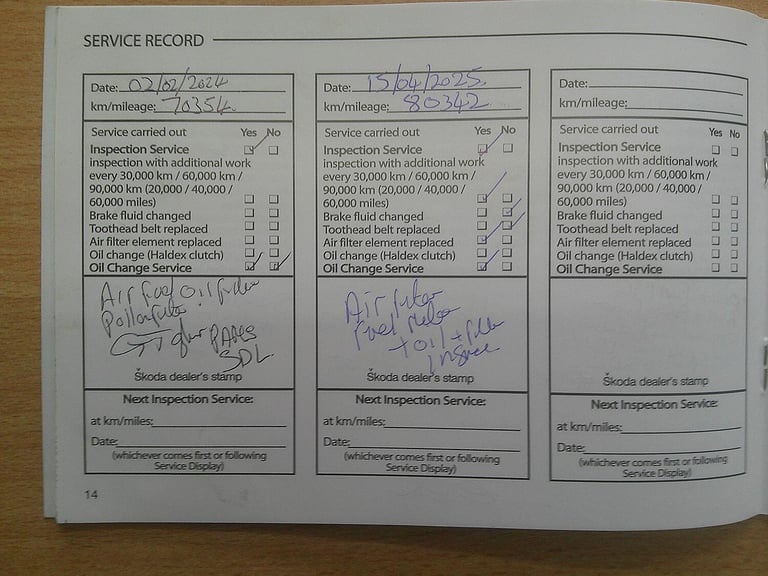 SERVICE RECORD
Date: 02/02/2024
km/mileage: 70354
Service carried out Yes No
Inspection Service
inspection with additional work
every 30,000 km / 60,000 km /
90,000 km (20,000 / 40,000 /
60,000 miles)
Brake fluid changed
Toothead belt replaced
Air filter element replaced
Oil change (Haldex clutch)
Oil Change Service
Air Fuel oil filter
Pollen filter
PADS
Škoda dealer's stamp
Next Inspection Service:
at km/miles:
Date:
(whichever comes first or following
Service Display)
Date: 15/04/2025
km/mileage: 80342
Service carried out Yes No
Inspection Service
inspection with additional work
every 30,000 km / 60,000 km /
90,000 km (20,000 / 40,000 /
60,000 miles)
Brake fluid changed
Toothead belt replaced
Air filter element replaced
Oil change (Haldex clutch)
Oil Change Service
Air filter
Fuel filter
+ oil + filter
Škoda dealer's stamp
Next Inspection Service:
at km/miles:
Date:
(whichever comes first or following
Service Display)
Date:
km/mileage:
Service carried out Yes No
Inspection Service
inspection with additional work
every 30,000 km / 60,000 km /
90,000 km (20,000 / 40,000 /
60,000 miles)
Brake fluid changed
Toothead belt replaced
Air filter element replaced
Oil change (Haldex clutch)
Oil Change Service
Škoda dealer's stamp
Next Inspection Service:
at km/miles:
Date:
(whichever comes first or following
Service Display)
14